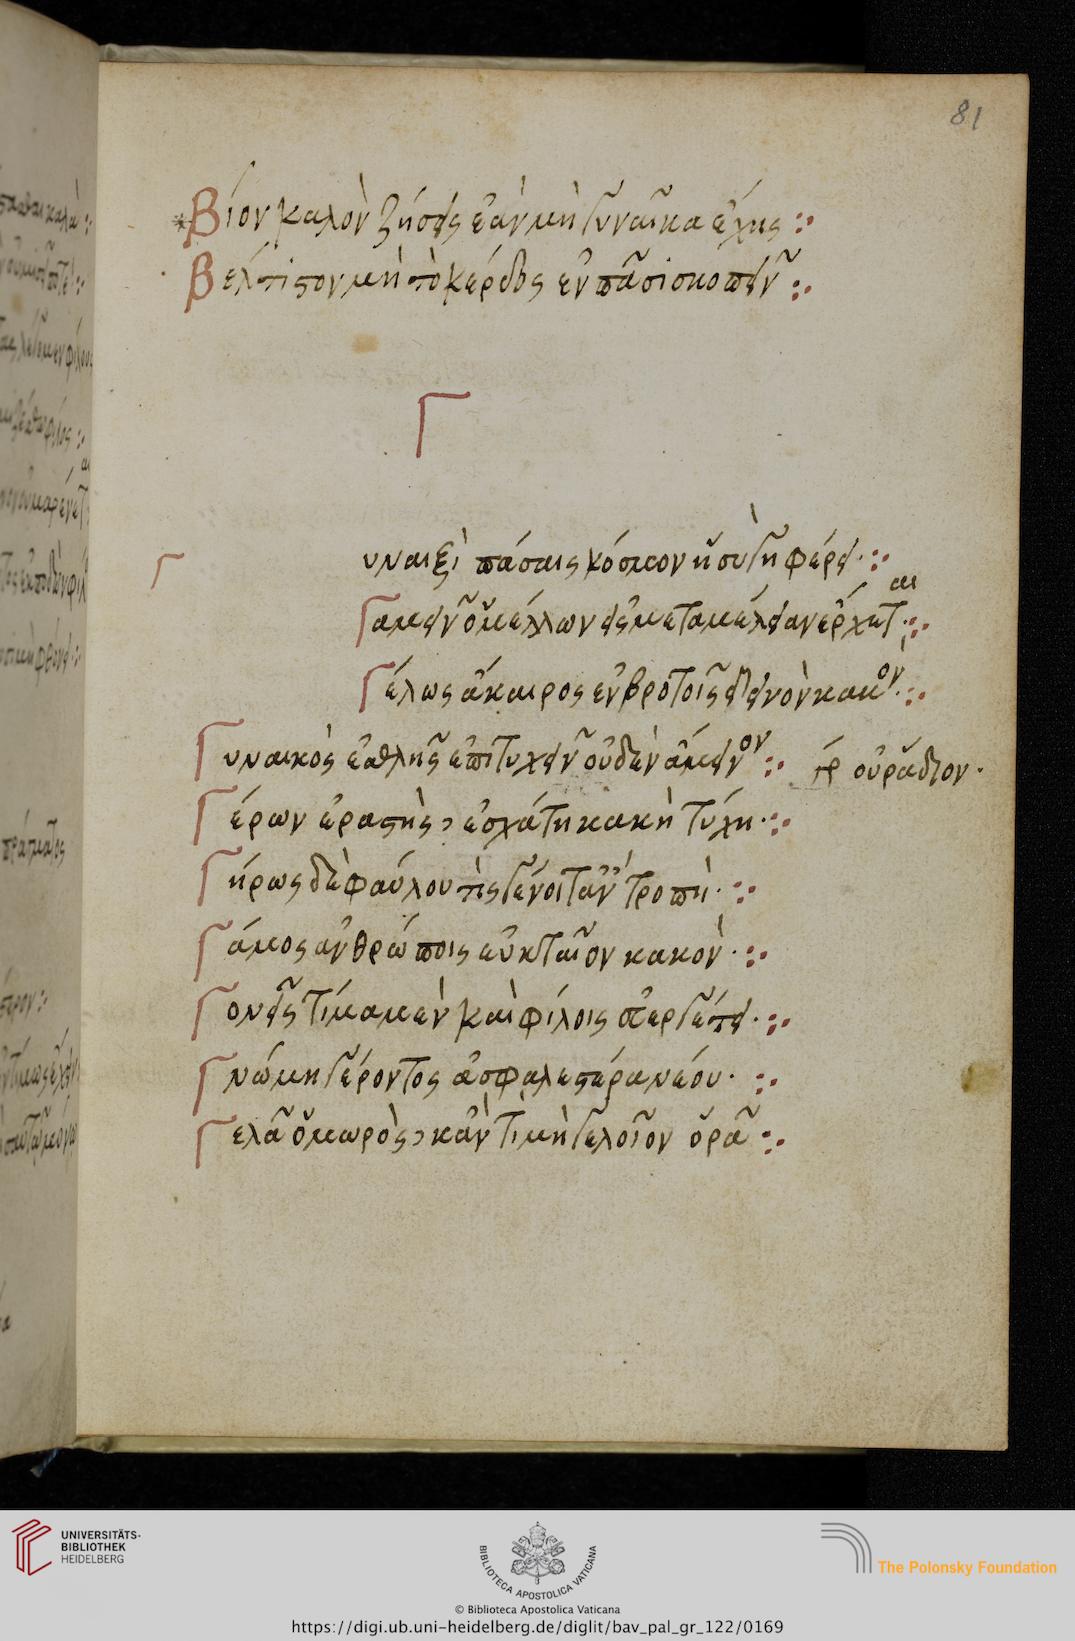 81
Βίον καλὸν ζήσεις ἐὰν μὴ γυναῖκα ἔχης
Βέλτιστον μὴ τὸ κέρδος ἐν πᾶσι σκοπεῖν
Γ
Γυναιξὶ πάσαις κόσμον ἡ σιγὴ φέρει
Γαμεῖν ὁ μέλλων εἰς μεταμέλειαν ἔρχεται
Γέλως ἄκαιρος ἐν βροτοῖς δεινὸν κακόν
Γυναικὸς ἐσθλῆς ἐπιτυχεῖν οὐδὲν ἄμεινον οὐ ῥάδιον
Γέρων ἐραστὴς ἐσχάτη κακὴ τύχη
Γήρως δὲ φαύλου τίς γένοιτ' ἂν τροπή
Γάμος ἀνθρώποις εὐκταῖον κακόν
Γονεῖς τίμα μὲν καὶ φίλοις
Γνώμη γέροντος ἀσφαλεστέρα νέου
Γελᾶ ὁ μωρὸς κἄν τι μὴ γελοῖον ὁρᾶ
UNIVERSITÄTS-
BIBLIOTHEK
HEIDELBERG
BIBLIOTECA APOSTOLICA VATICANA
The Polonsky Foundation
© Biblioteca Apostolica Vaticana
https://digi.ub.uni-heidelberg.de/diglit/bav_pal_gr_122/0169